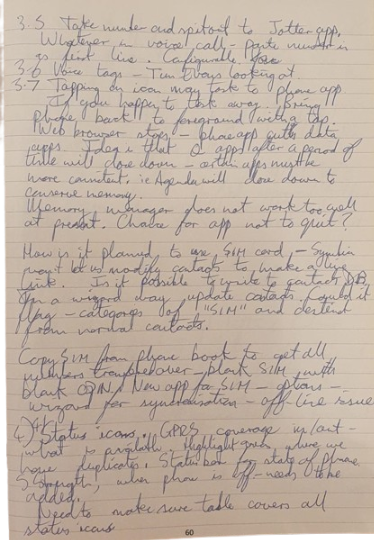 3.5 Take number and spit out to Jotter app.
Whatever in voice call – paste number in
as first line. Configurable
3.6 Voice tags – Tim Evans looking at
3.7 Tapping on icon may task to phone app
If you happy to task away. Bring
phone back to foreground with a tap.
Web browser stops – phone app quits data
apps. Idea is that Q apps after a period of
time will close down – certain apps must be
more consistent. ie Agenda will close down to
conserve memory.
Memory manager does not work too well
at present. Chance for app not to quit?
How is it planned to use SIM card – Symbian
won't let us modify contacts to make a live
link. Is it possible to write to contacts DB
in a wizard way, update contacts. Could it
flag – categories of "SIM" and distinct
from normal contacts.
Copy SIM from phone book to get all
numbers transferred over – blank SIM with
blank New app for SIM – options –
wizard for synchronisation – off-line issue
4) Status icons, GPRS coverage in/out –
what is available. Highlight areas where we
have duplicates. Status bar for state of phone
strength, when phone is off – needs to be
added.
Need to make sure table covers all
status icons
60